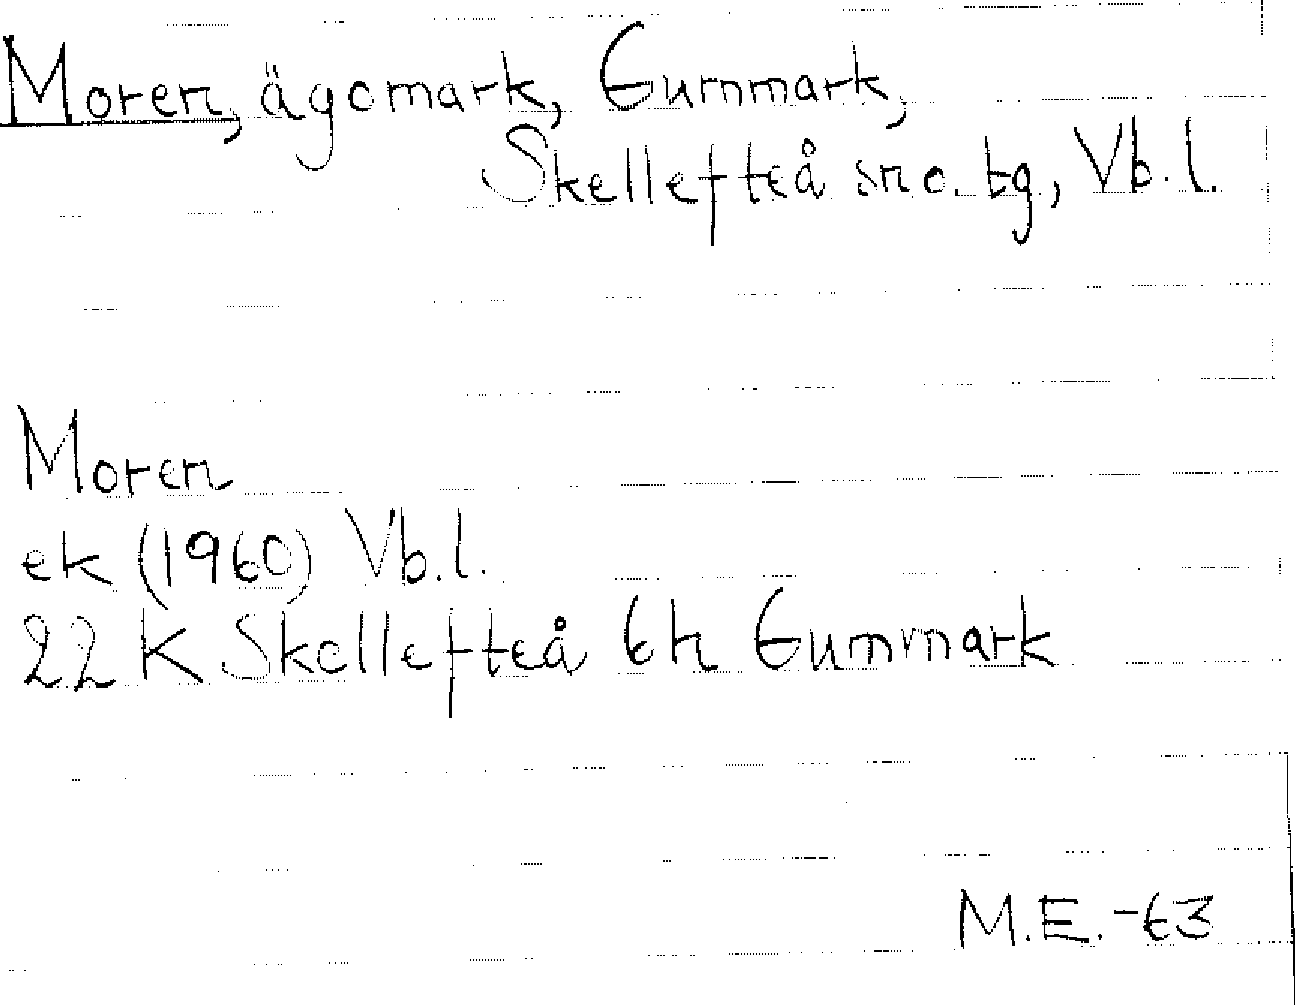 Moren, ägomark, Gummark,
Skellefteå sn o. tg, Vb. l.
Moren
ek (1960) Vb. l.
22 K Skellefteå 6h Gummark
M.E. -63